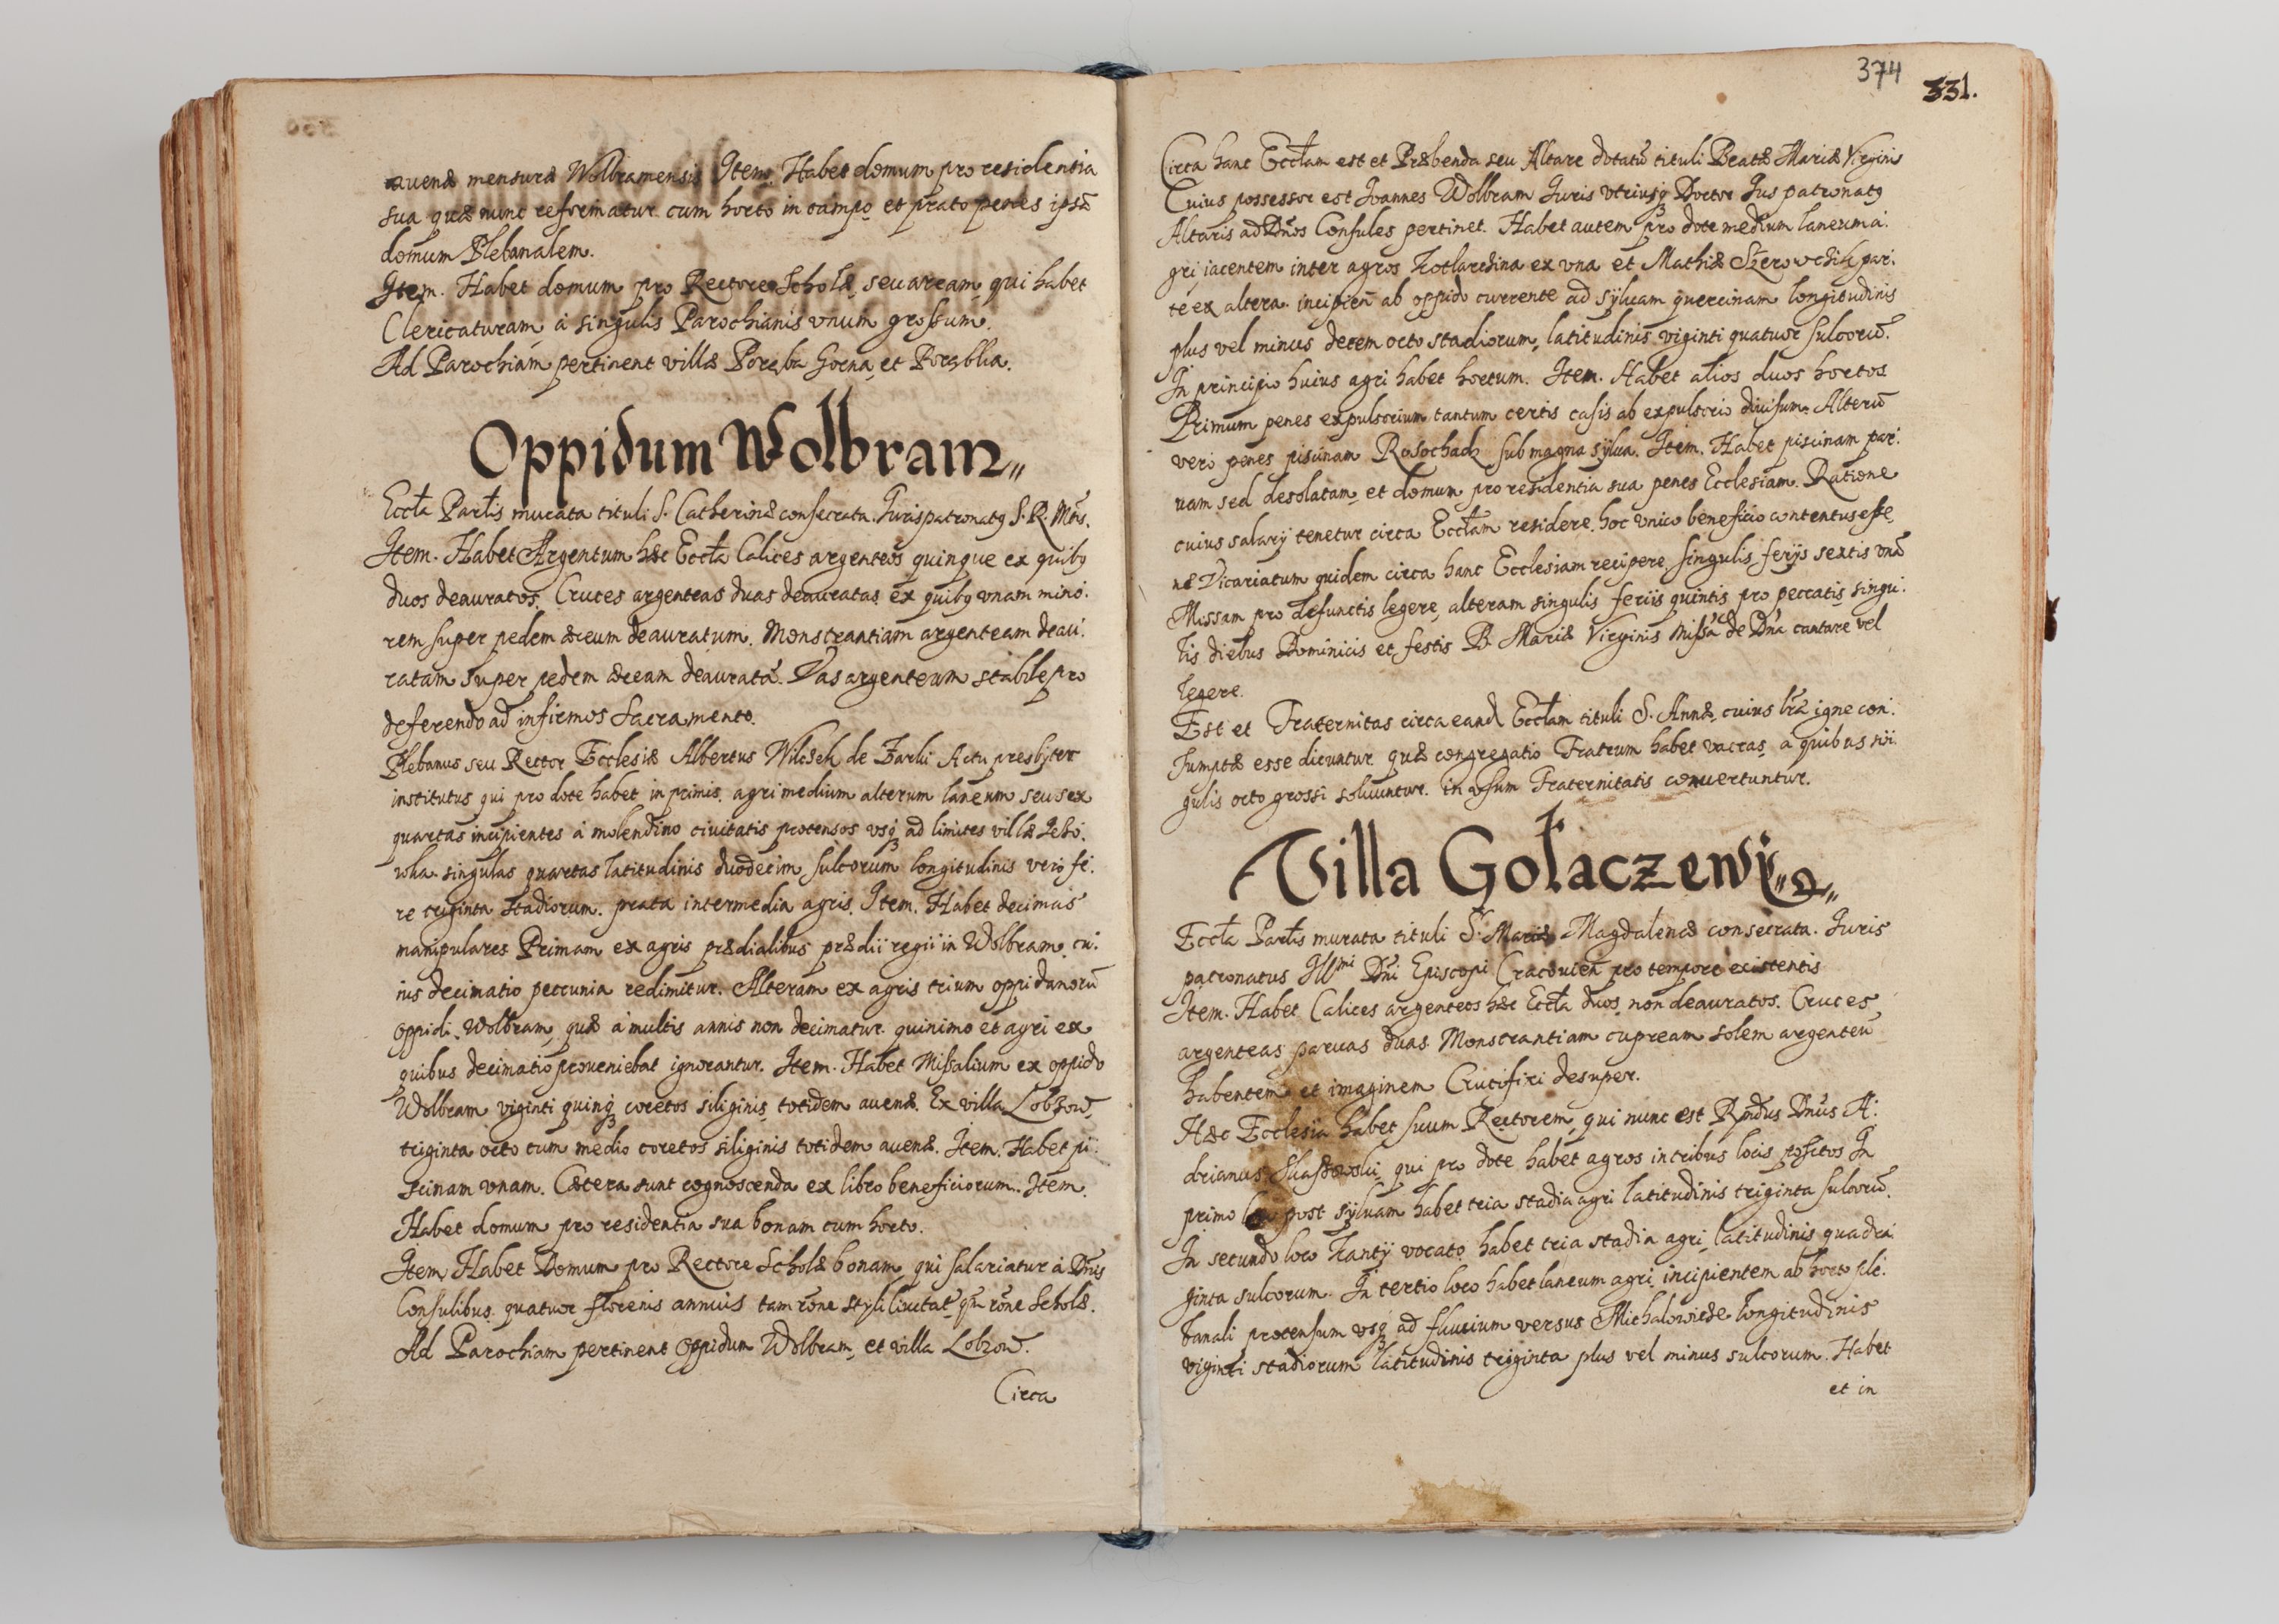 auenæ mensuræ Wolbramensis Item. Habet domum pro residentia
sua quæ nunc reformatur cum horto in campo et prato penes ipsā
domum Plebanalem.
Item. Habet domum pro Rectore Scholæ, seu aream, qui habet
Clericaturam à singulis Parochianis vnum grossum.
Ad Parochiam pertinent villæ Poręba Gorna, et Porąblia.
Oppidum Wolbram
Eccła Parłis murata tituli S. Catherinæ consecrata. Juris patronatꝯ S. R. Mtis.
Item. Habet Argentum hæc Eccła Calices argenteos quinque ex quibꝯ
duos deauratos. Cruces argenteas duas deauratas ex quibꝯ vnam mino.
rem super pedem æreum deauratum. Monstrantiam argenteam deau.
ratam super pedem æream deauratā. Vas argenteum stabile pro
deferendo ad infirmos Sacramento.
Plebanus seu Rector Ecclesiæ Albertus Wilczek de Zarki Actu presbyter
institutus qui pro dote habet in primis. agri medium alterum laneum seu sex
quartas incipientes à molendino ciuitatis protensos vsqꝫ ad limites villæ
singulas quartas latitudinis duodecim sulcorum longitudinis vero fe.
re triginta stadiorum. prata intermedia agris. Item. Habet decimas
manipulares Primam ex agris prædialibus prædii regii in Wolbram, cu.
ius decimatio pecunia redimitur. Alteram ex agris trium oppidanorū
oppidi Wolbram, quæ à multis annis non decimatur. quinimo et agri ex
quibus decimatio proueniebat ignorantur. Item. Habet Missalium ex oppido
Wolbram viginti quinqꝫ coretos siliginis totidem auenæ. Ex villa Lobzow
triginta octo cum medio coretos siliginis totidem auenæ. Item. Habet pi.
scinam vnam. Cætera sunt cognoscenda ex libro beneficiorum. Item.
Habet domum pro residentia sua bonam cum horto.
Item Habet Domum pro Rectore Scholæ bonam, qui salariatur à Dnis
Consulibus. quatuor florenis annuis tam rōne styli ciuitat. qm rōne Scholæ.
Ad Parochiam pertinent oppidum Wolbram, et villa Lobzow.
Circa
374
331.
Circa hanc Eccłam est et Præbenda seu Altare dotatū tituli Beatæ Mariæ Virginis
Cuius possessor est Joannes Wolbram Juris vtriusqꝫ Doctor Jus patronatꝯ
Altaris ad Dnos Consules pertinet. Habet autem pro dote medium laneum a.
gri iacentem inter agros Kotlarchina ex vna et Mathiæ par.
te ex altera. incipien ab oppido currente ad syluam quercinam longitudinis
plus vel minus decem octo stadiorum, latitudinis viginti quatuor sulcorū.
In principio huius agri habet hortum. Item. Habet alios duos hortos
Primum penes expulsorium tantum certis casis ab expulsorio diuisum. Alterū
vero penes piscinam Rosochacz sub magna sylua. Item. Habet piscinam par.
uam sed desolatam, et domum pro residentia sua penes Ecclesiam. Ratione
cuius salarij tenetur circa Eccłam residere, hoc vnico beneficio contentus esse,
ne Vicariatum quidem circa hanc Ecclesiam recipere, singulis ferijs sextis vnā
Missam pro defunctis legere, alteram singulis feriis quintis pro peccatis, singu.
lis diebus Dominicis et festis B. Mariæ Virginis Missā de Dna cantare vel
legere.
Est et Fraternitas circa eand Eccłam tituli S. Annæ, cuius lræ igne con.
sumptæ esse dicuntur quæ congregatio Fratrum habet vaccas, à quibus sin.
gulis octo grossi soluuntur. in vsum Fraternitatis conuertuntur.
Villa Gołaczewi
Eccła Parłis murata tituli S. Mariæ Magdalenæ consecrata. Juris
patronatus Illmi Dni Episcopi Cracouien pro tempore existentis
Item. Habet Calices argenteos hæc Eccła duos, non deauratos. Cruces
argenteas paruas duas Monstrantiam cupream solem argenteū
habentem et imaginem Crucifixi desuper.
Hæc Ecclesia habet suum Rectorem, qui nunc est Rndus Dnus A.
drianus qui pro dote habet agros in tribus locis positos In
primo loco post syluam habet tria stadia agri latitudinis triginta sulcorū.
In secundo loco Kanty vocato habet tria stadia agri, latitudinis quadra
ginta sulcorum. In tertio loco habet laneum agri, incipientem ab horto ple.
banali protensum vsqꝫ ad fluuium versus Michalowice longitudinis
viginti stadiorum latitudinis triginta plus vel minus sulcorum. Habet
et in